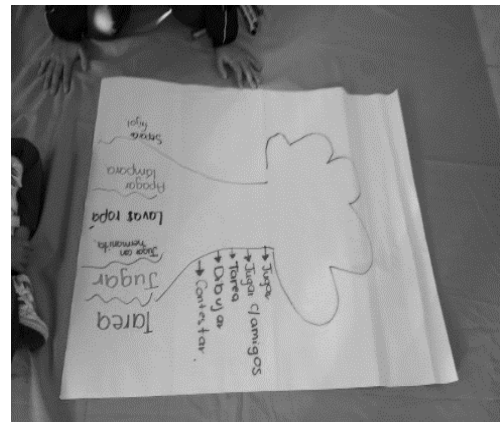 Sacar
frijol
Apagar
lámpara
Lavas ropa
Jugar con
hermanita.
Jugar
Tarea
→ Jugar
→ Jugar c/amigos
→ Tarea
→ Dibujar
→ Contestar.